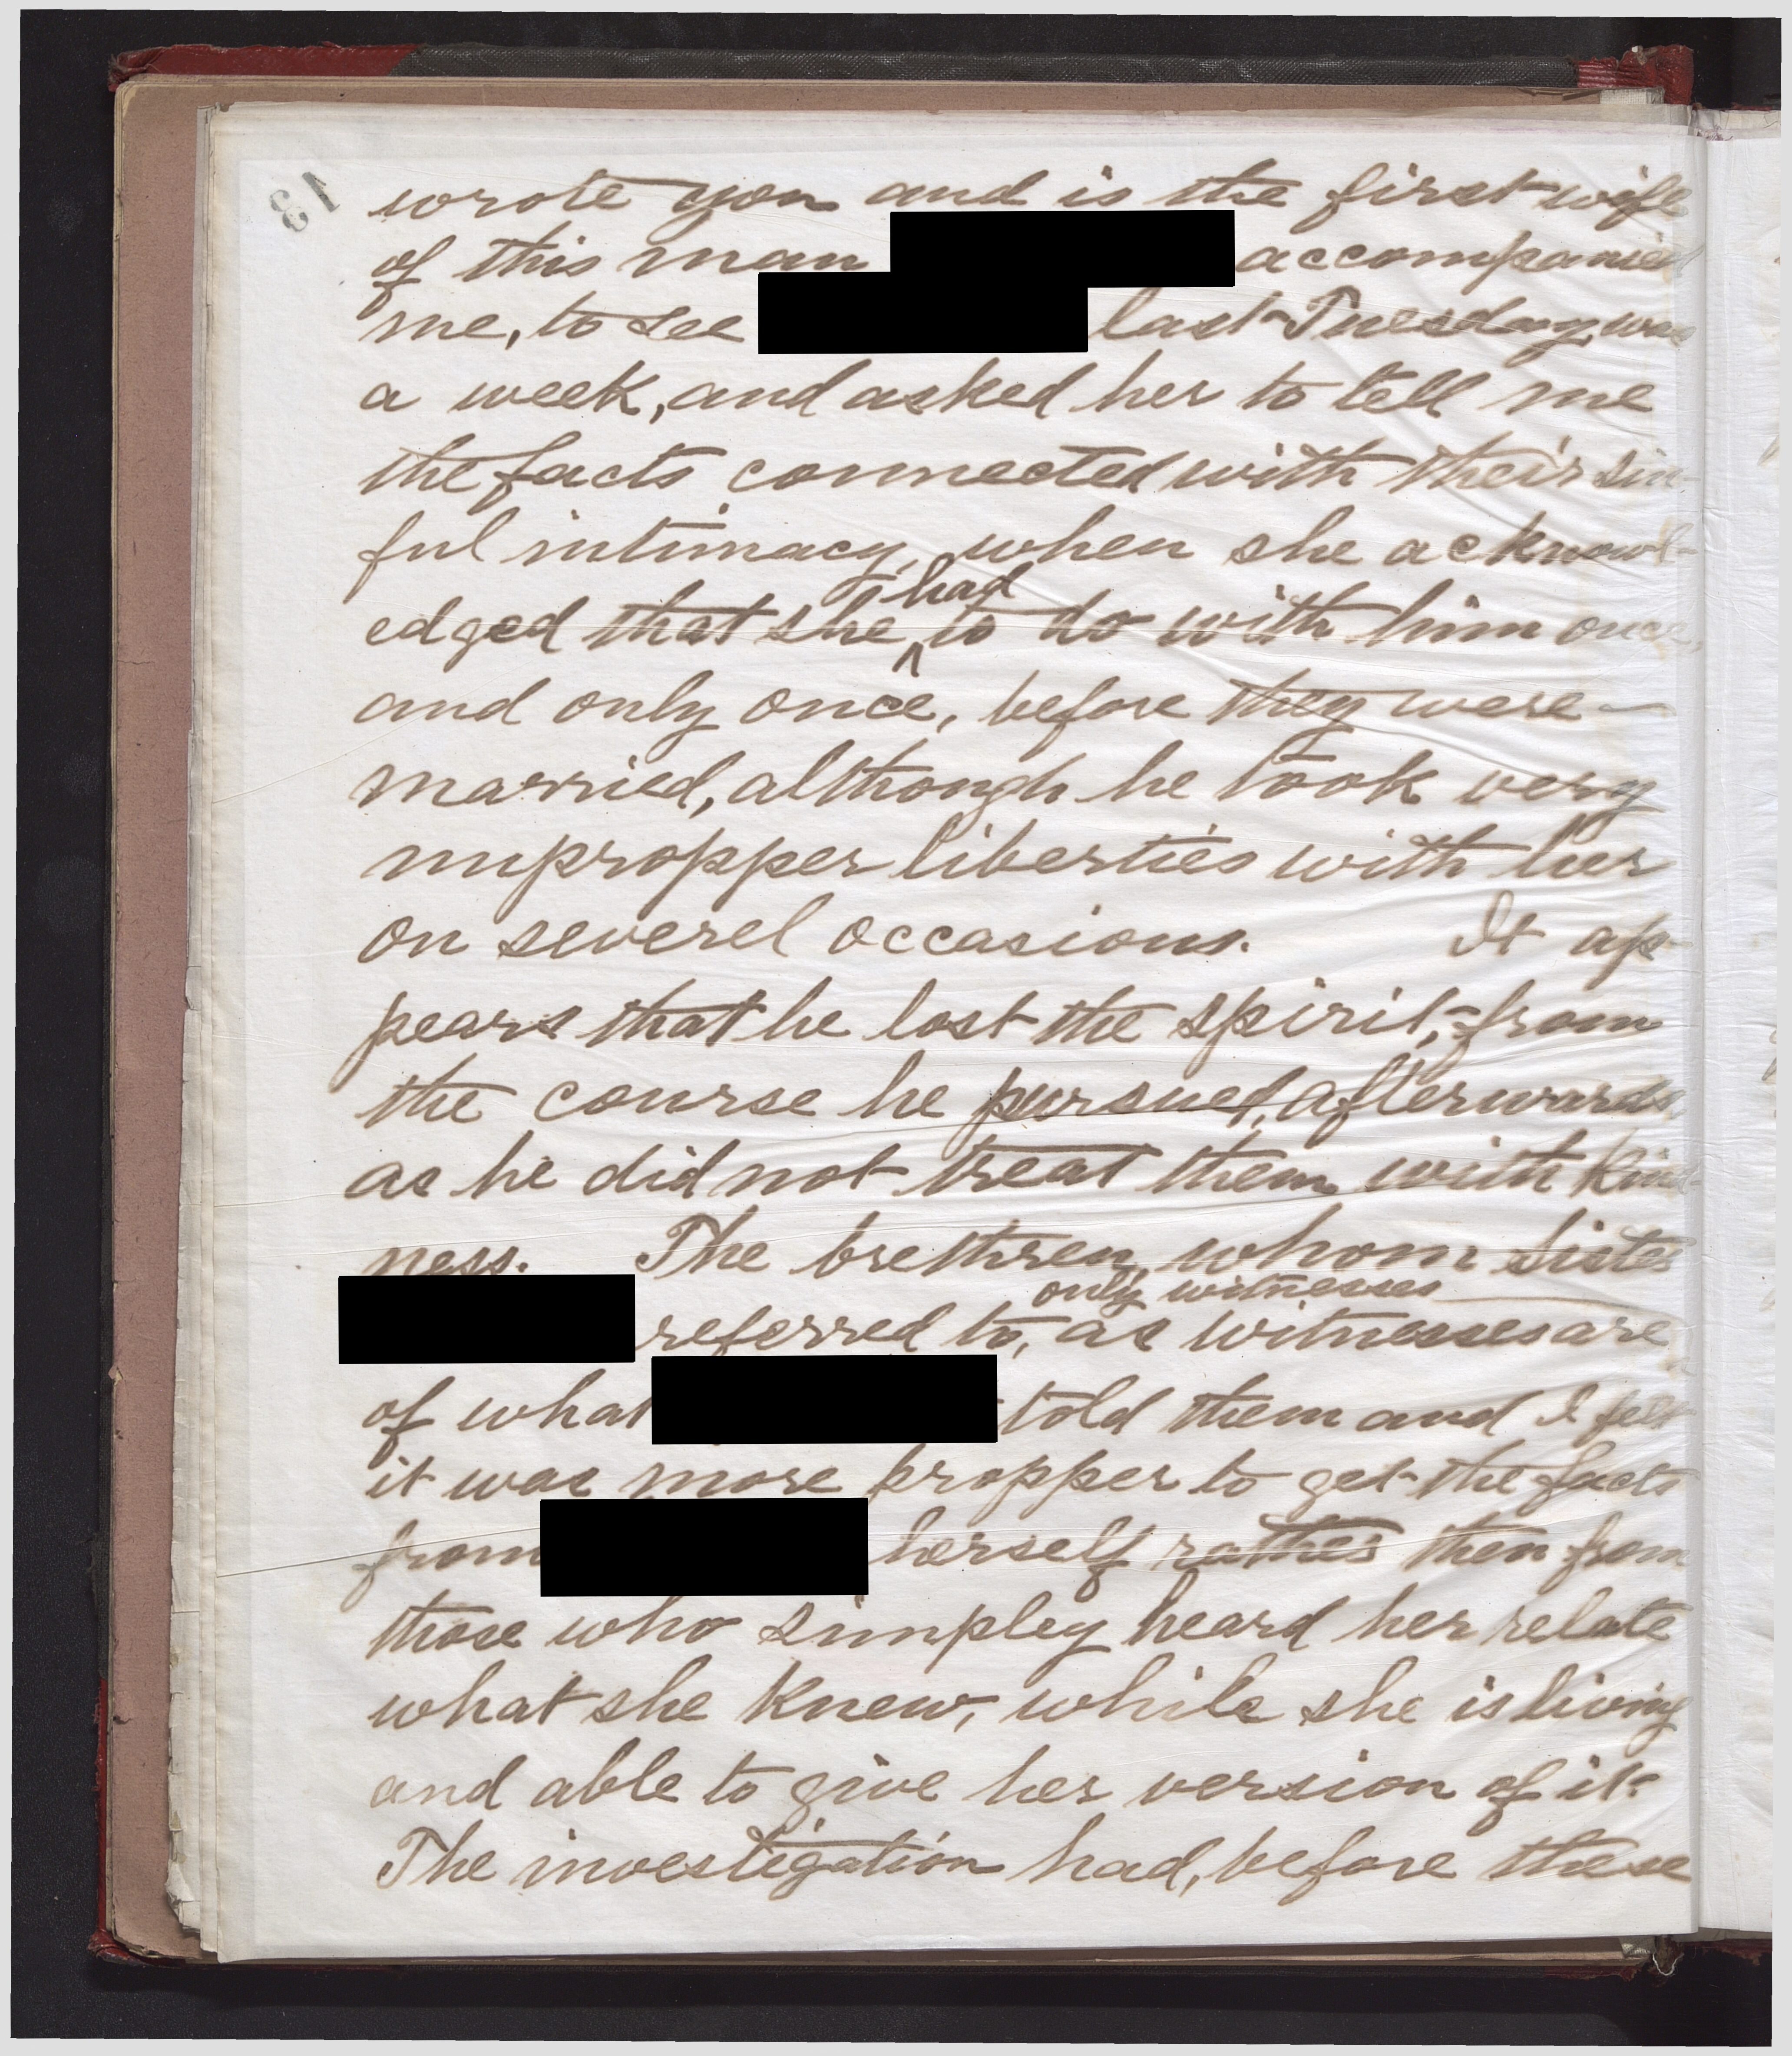 13
wrote you and is the first wife
of this man accompanied
me, to see last Tuesday, was
a week, and asked her to tell me
the facts connected with their sin-
ful intimacy, when she acknowl-
had
edged that she ^ to do with him once,
and only once, before they were
married, although he took very
impropper liberties with her
on severel occasions. It ap-
pears that he lost the spirit, from
the course he pursued, afterwards,
as he did not treat them with kind-
ness. The brethren, whom Sister
only witnesses
referred to, as witnesses are
of what told them and I felt
it was more propper to get the facts
from herself rather then from
those who simpley heard her relate
what she knew, while she is living
and able to give her version of it.
The investigation had, before these